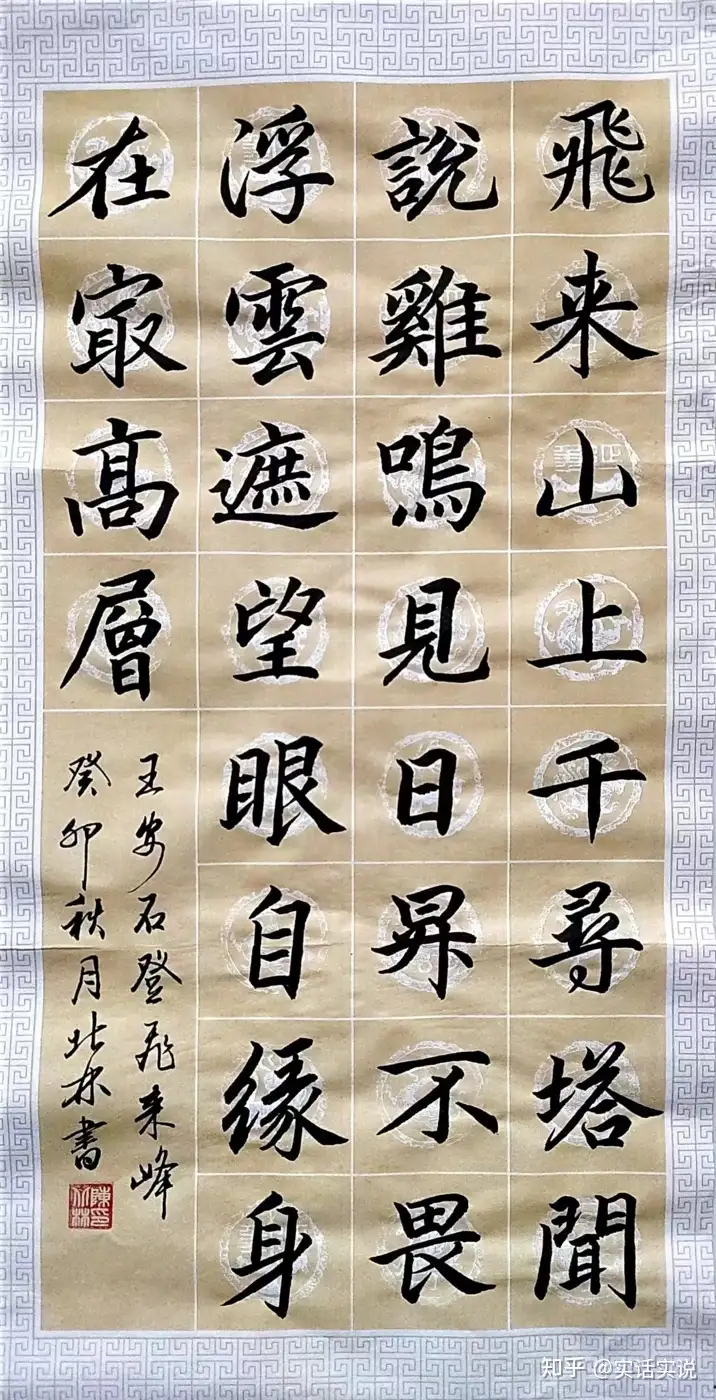 飛来山上千尋塔聞
說雞鳴見日昇不畏
浮雲遮望眼自緣身
在最高層
王安石登飛来峰
癸卯秋月北林書
陳北林印
知乎 @实话实说